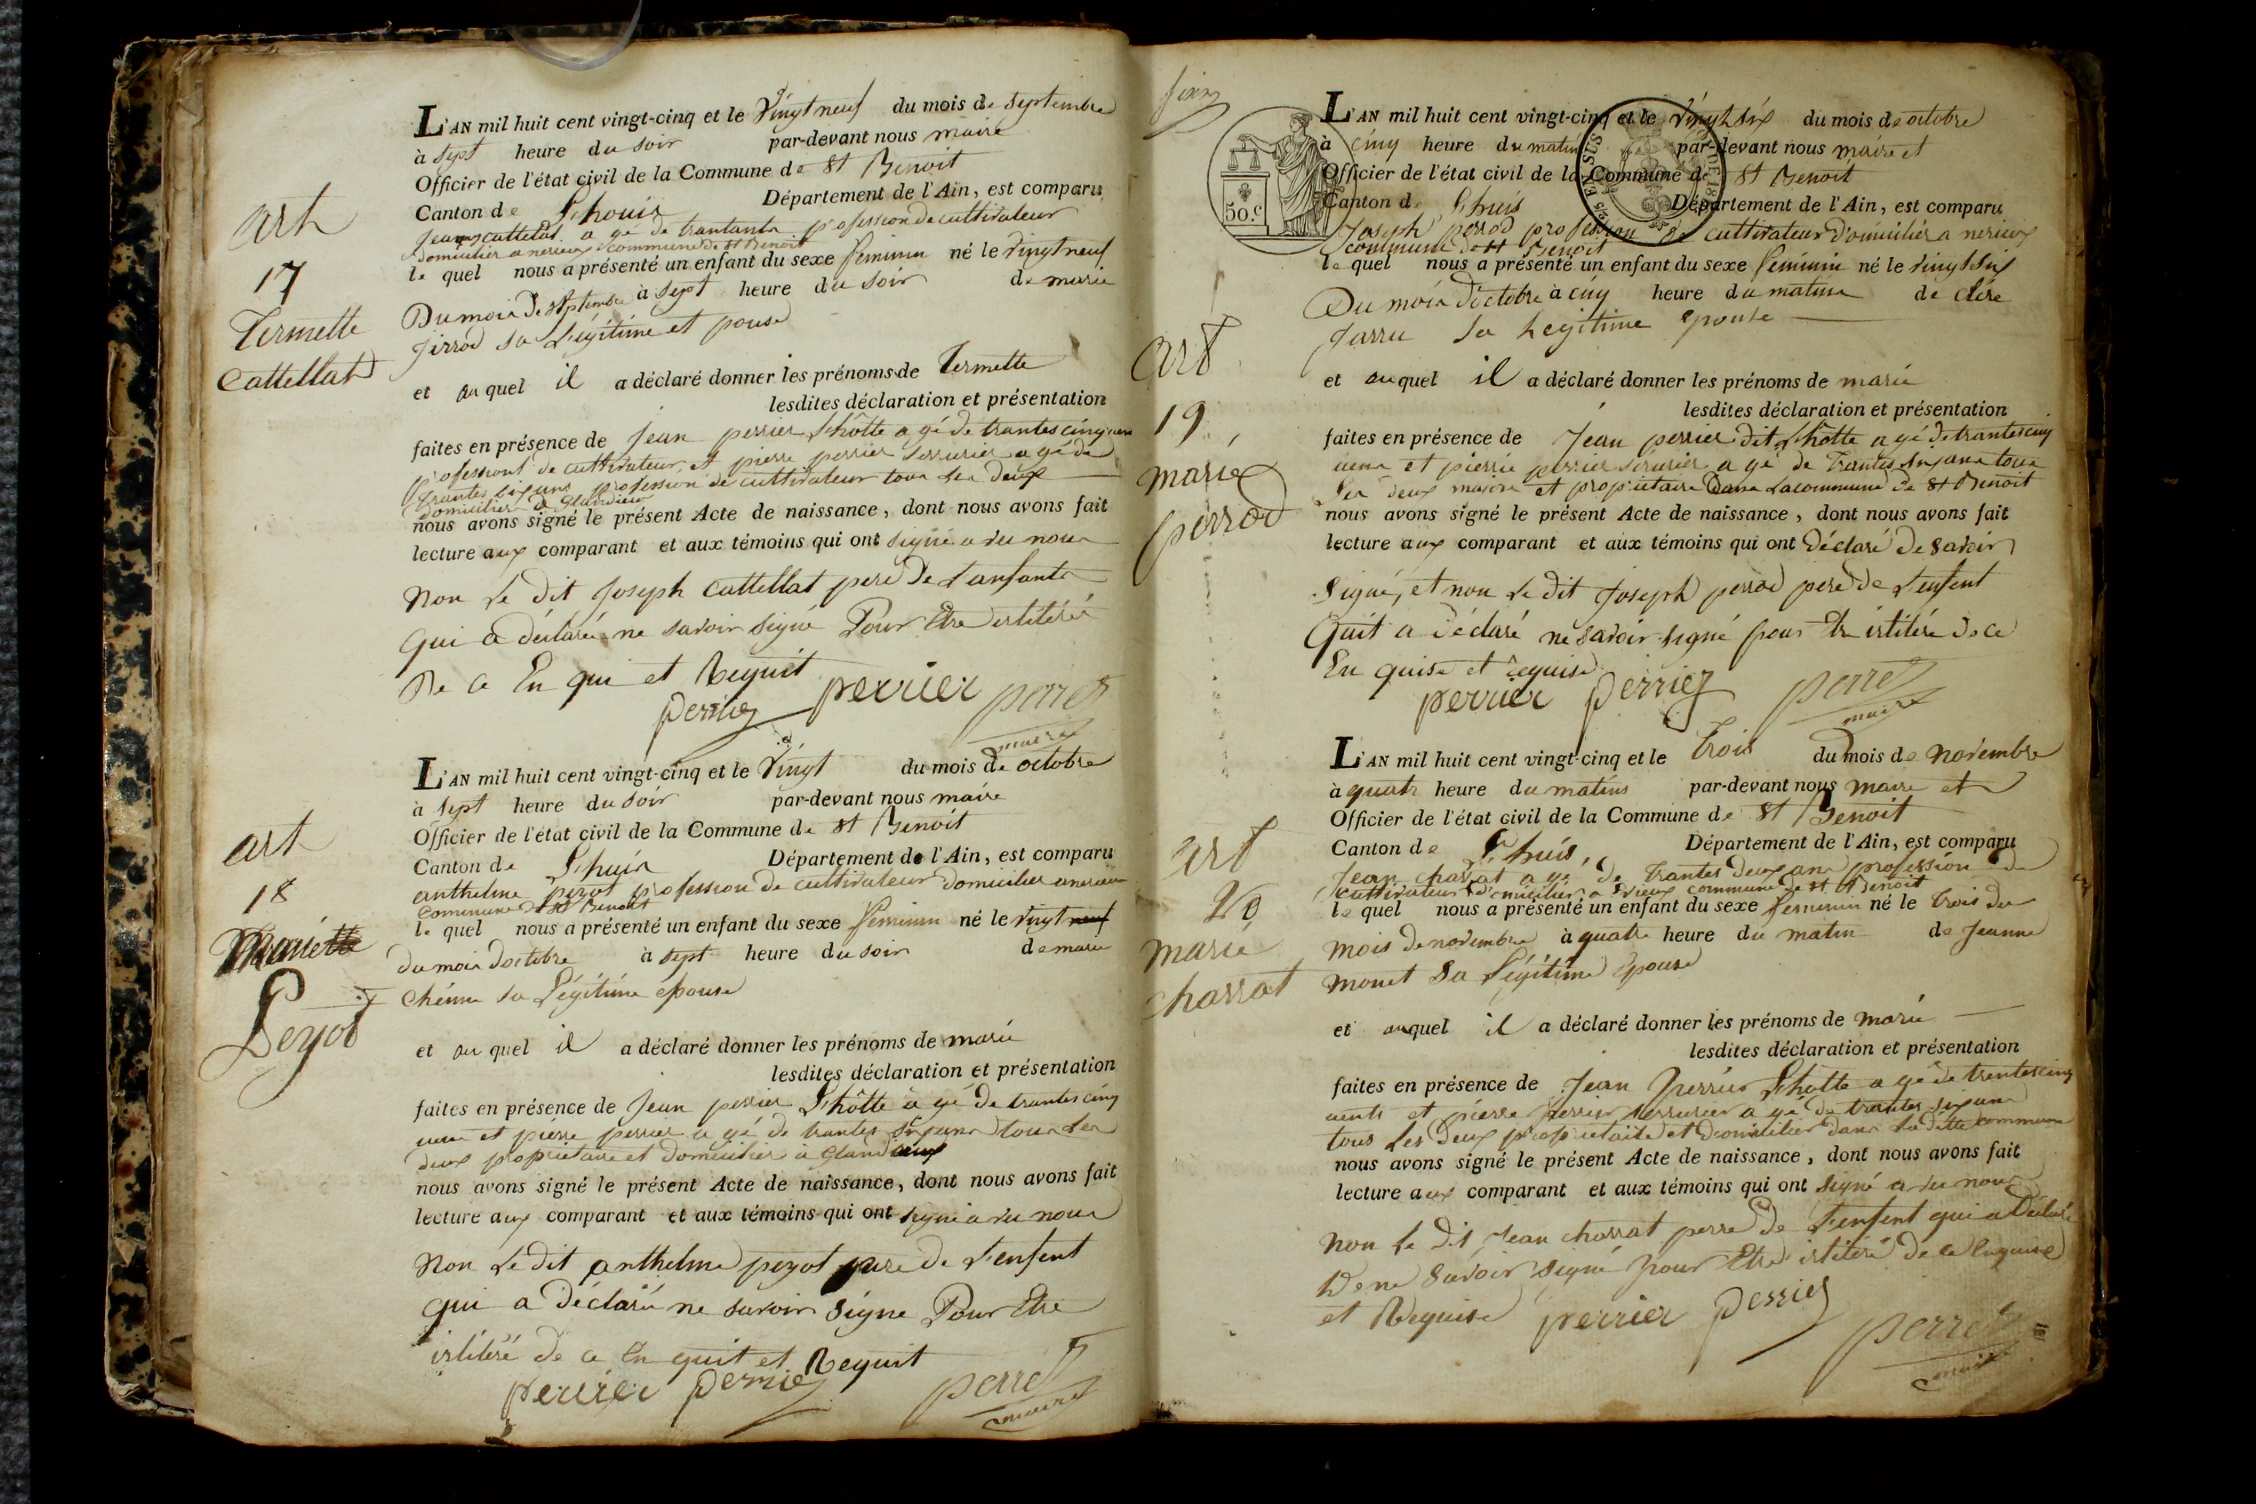 art
17
Termette
Cattellat
L'AN mil huit cent vingt-cinq et le Vingt neuf du mois de septembre
à sept heure du soir par-devant nous maire
Officier de l'état civil de la Commune de St Benoit
Canton de Lhouis Département de l'Ain, est comparu
cattellat a gé de trantants profession de cultivateur
domicilier a nerieux commune de St Benoit
le quel nous a présenté un enfant du sexe feminin né le vingt neuf
Du mois De septembre à sept heure du soir de marie
sa Légitime et pouse
et au quel il a déclaré donner les prénoms de Termette
lesdites déclaration et présentation
faites en présence de jean perrier Lhôtte a gé de trantes cinq
professions de cultivateur, et pierre perrier serrurier a gé de
trantes six ans profession de cultivateur tous les deux
domicilier a Glandieux
nous avons signé le présent Acte de naissance, dont nous avons fait
lecture aux comparant et aux témoins qui ont signé avec nous
Non le dit joseph cattellat pere De l'anfante
qui a déclaré ne savoir signé Pour Etre
De ce En qui et Requit
perrier perrier perret
maire
art
18
Mariette
Peyot
L'AN mil huit cent vingt-cinq et le Vingt du mois de octobre
à sept heure du soir par-devant nous maire
Officier de l'état civil de la Commune de St Benoit
Canton de Lhuis Département de l'Ain, est comparu
anthelme peyot profession de cultivateur domicilier a nerieux
commune de St Benoit
le quel nous a présenté un enfant du sexe feminin né le vingt neuf
du mois d'octobre à sept heure du soir de marie
sa Légitime epouse
et au quel il a déclaré donner les prénoms de marie
lesdites déclaration et présentation
faites en présence de jean perrier Lhôtte a gé de trantes cinq
et pierre perrier a gé de trantes six ans tous les
deux propriétaire et domicilier à Glandieux
nous avons signé le présent Acte de naissance, dont nous avons fait
lecture aux comparant et aux témoins qui ont signé avec nous
Non le dit anthelme peyot pere de l'enfent
qui a déclaré ne savoir signe Pour Etre
de ce En quit et Requit
perrier perrier perret
maire
50 c.
art
19
marie
perrod
L'AN mil huit cent vingt-cinq et le Vingt six du mois de octobre
à cinq heure du matin par-devant nous maire et
Officier de l'état civil de la Commune de St Benoit
Canton de Lhuis Département de l'Ain, est comparu
joseph perrod profession de cultivateur domicilier a nerieux
commune de St Benoit
le quel nous a présenté un enfant du sexe feminin né le vingt six
Du mois d'octobre à cinq heure du matin de Clere
sa Legitime epouse
et au quel il a déclaré donner les prénoms de marie
lesdites déclaration et présentation
faites en présence de jean perrier dit Lhôtte a gé de trantes cinq
et pierre perrier a gé de trantes six ans tous
Les deux et propriétaire Dans la commune De St Benoit
nous avons signé le présent Acte de naissance, dont nous avons fait
lecture aux comparant et aux témoins qui ont Déclaré De savoir
signé, et non le dit joseph perrod pere de L'enfent
Quit a déclaré ne savoir signé pour Etre de ce
En quise et requise
perrier perrier perret
maire
art
20
marie
charrat
L'AN mil huit cent vingt-cinq et le trois du mois de novembre
à quatre heure du matins par-devant nous maire et
Officier de l'état civil de la Commune de St Benoit
Canton de Lhuis, Département de l'Ain, est comparu
jean charrat a gé de trantes deux ans profession de
cultivateur domicilier a commune de St Benoit
le quel nous a présenté un enfant du sexe feminin né le trois du
mois de novembre à quatre heure du matin de jeanne
monet sa Légitime Epouse
et auquel il a déclaré donner les prénoms de marie
lesdites déclaration et présentation
faites en présence de jean perrier Lhotte a gé de trentes cinq
et pierre perrier serrurier a gé de trantes six ans
tous les deux propriétaire et domicilier dans la ditte commune
nous avons signé le présent Acte de naissance, dont nous avons fait
lecture aux comparant et aux témoins qui ont signé avec nous
non le dit jean charrat perre de l'enfent qui a Déclaré
De ne savoir signé pour Etre de ce
et Requise perrier perrier perret
maire